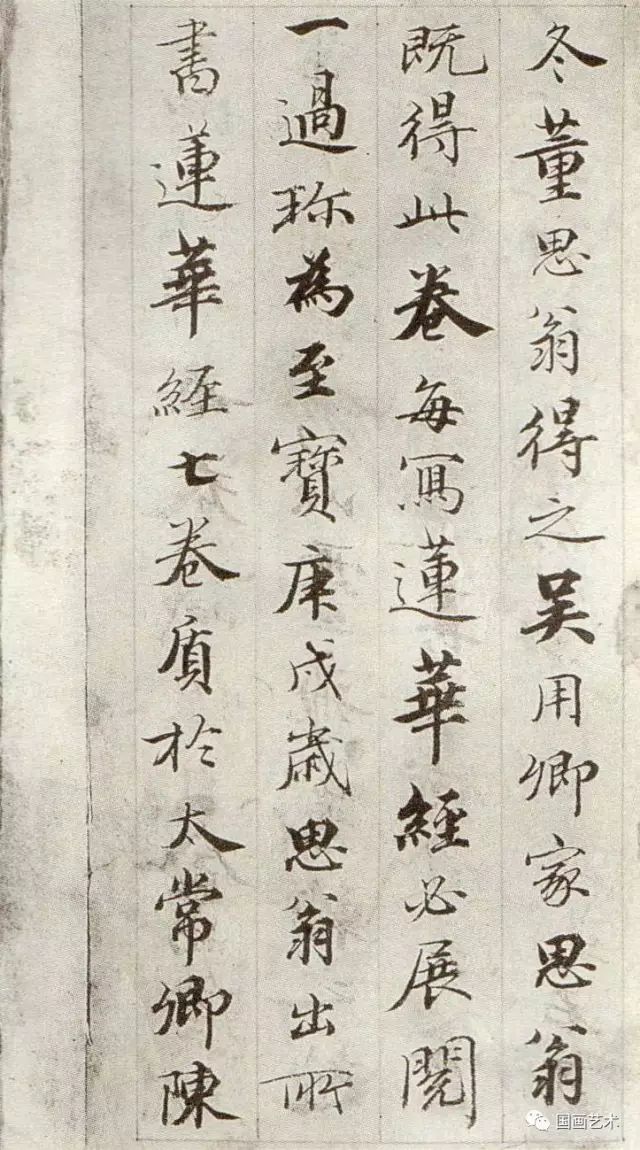 冬董思翁得之吴用卿家思翁
既得此卷每寫蓮華經必展閱
一過珎為至寶庚戌歳思翁出所
書蓮華經七卷質於太常卿陳
国画艺术